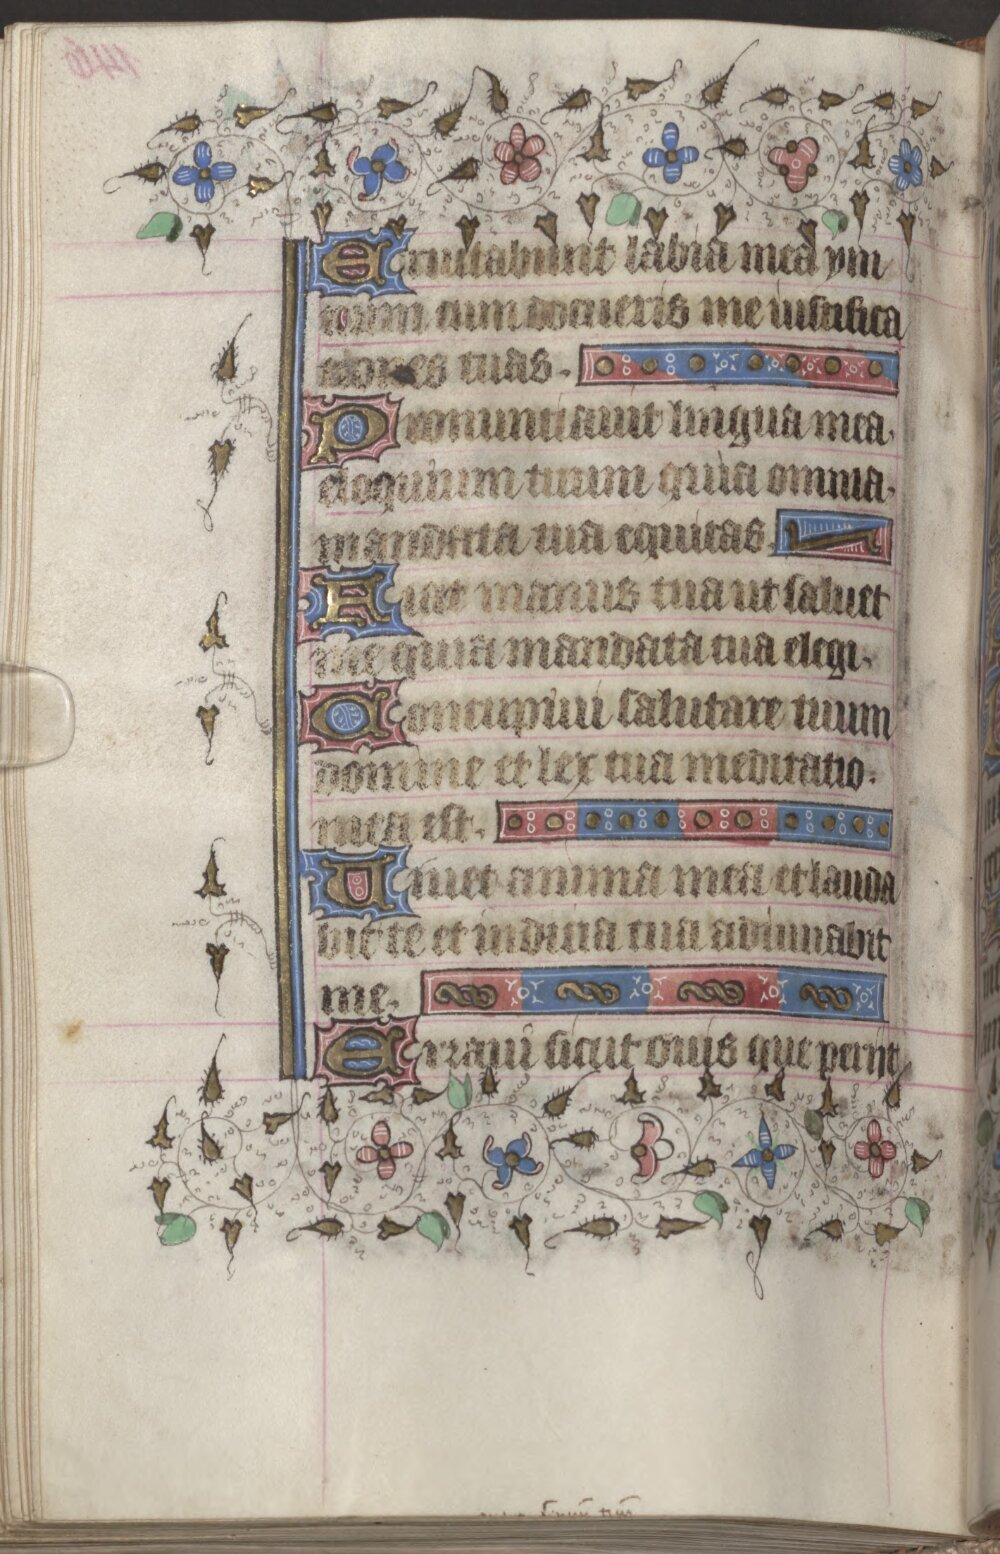 Eructabunt labia mea ym
num cum docueris me iustifica
tiones tuas.
Pronuntiauit lingua mea
eloquium tuum quia omnia
mandata tua equitas.
Fiat manus tua ut saluet
me quia mandata tua elegi.
Concupiui salutare tuum
domine et lex tua meditatio
mea est.
Uiuet anima mea et lauda
bit te et iudicia tua adiuuabit
me.
Erraui sicut ouis que perijt